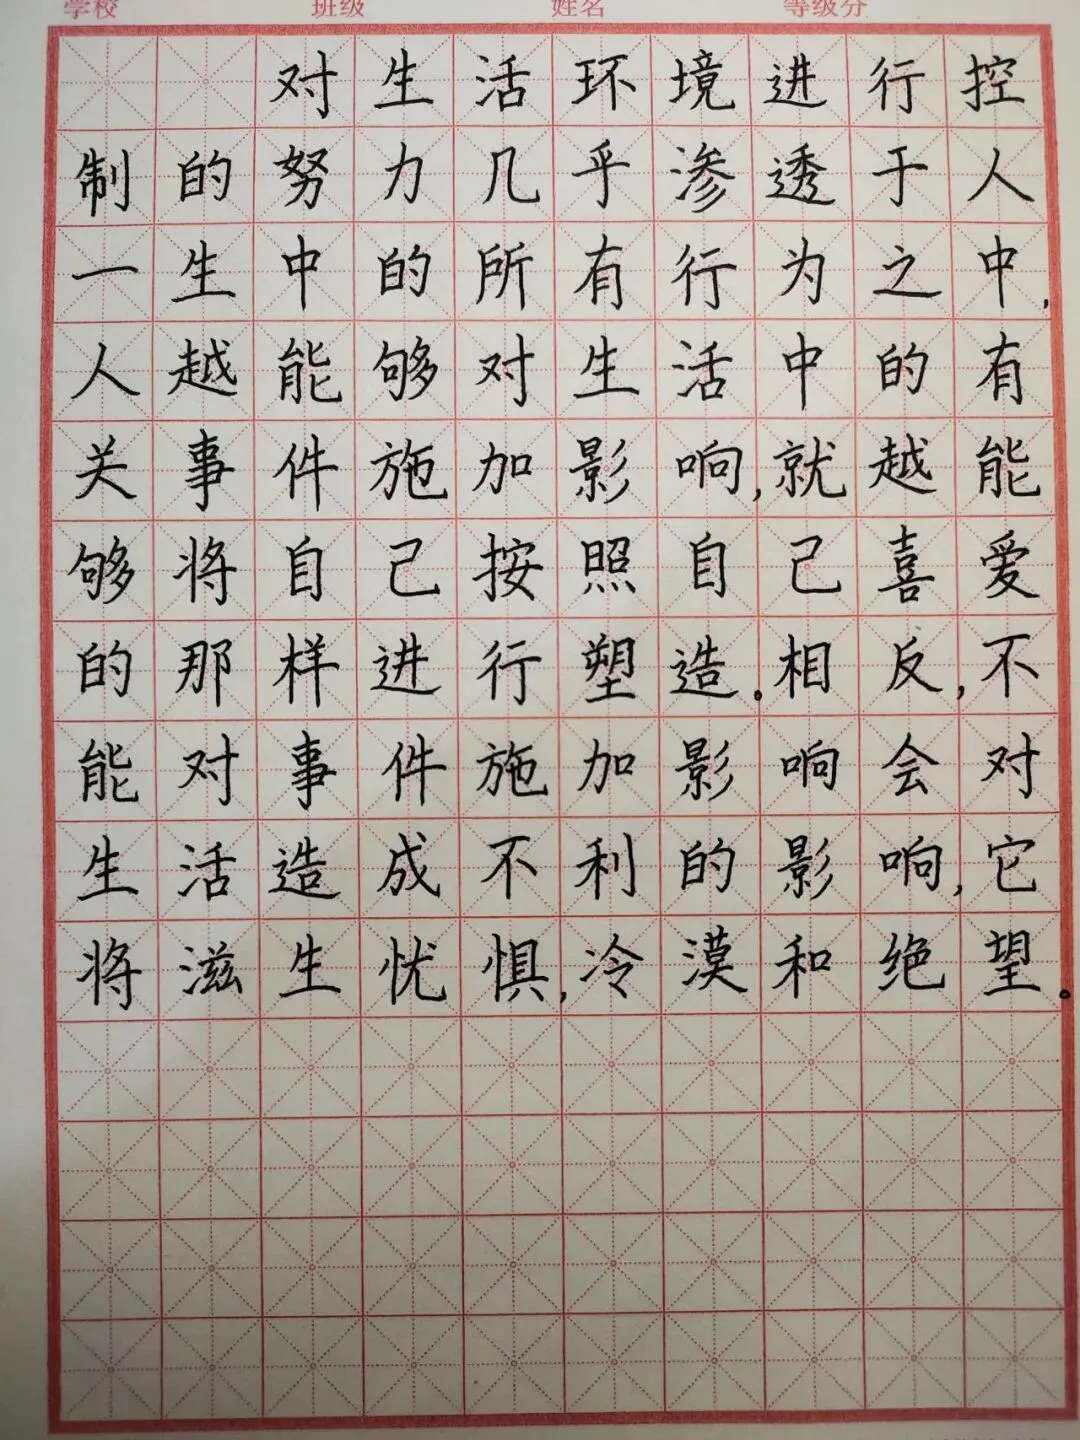 学校 班级 姓名 等级分
对生活环境进行控
制的努力几乎渗透于人
一生中的所有行为之中,
人越能够对生活中的有
关事件施加影响,就越能
够将自己按照自己喜爱
的那样进行塑造。相反,不
能对事件施加影响会对
生活造成不利的影响,它
将滋生忧惧,冷漠和绝望。